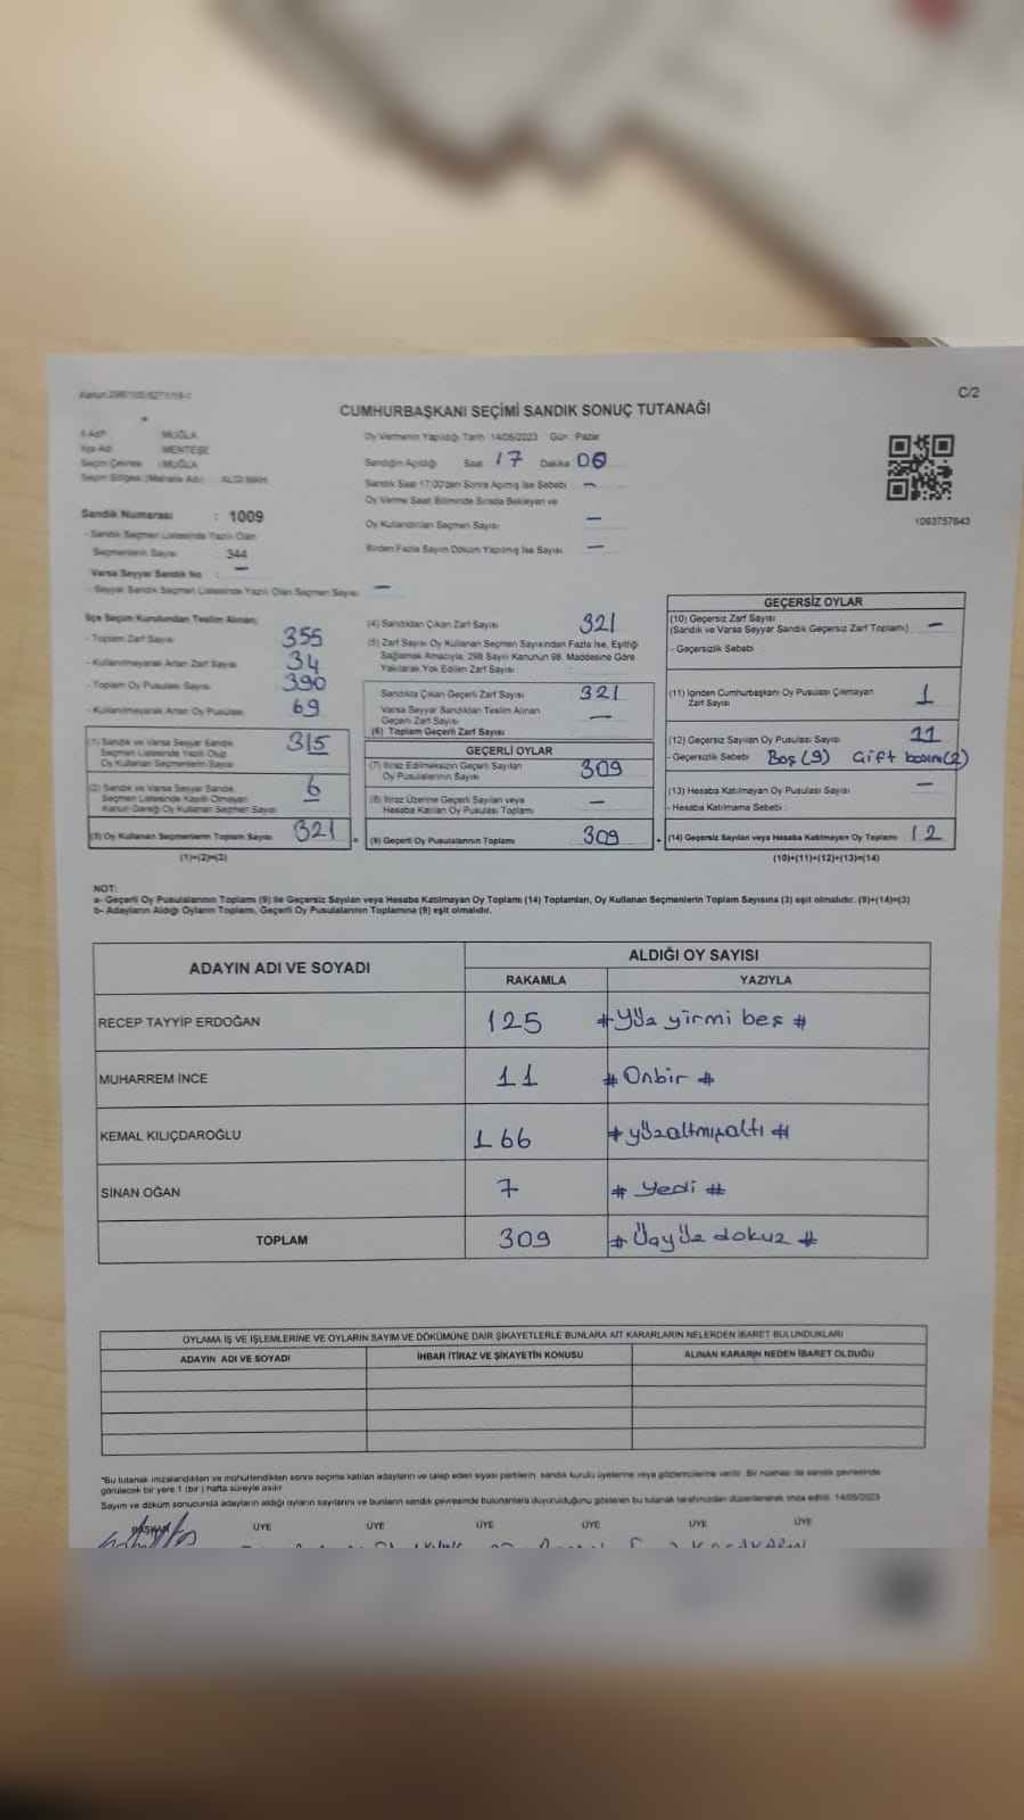 C/2
CUMHURBAŞKANI SEÇİMİ SANDIK SONUÇ TUTANAĞI
İl Adı : MUĞLA
İlçe Adı : MENTEŞE
Seçim Çevresi : MUĞLA
Seçim Bölgesi (Mahalle Adı) :
Oy Vermenin Yapıldığı Tarih 14/05/2023 Gün Pazar
Sandığın Açıldığı Saat 17 Dakika 00
Sandık Saat 17:00'den Sonra Açılmış İse Sebebi –
Oy Verme Saat Bitiminde Sırada Bekleyen ve
Oy Kullandırılan Seçmen Sayısı –
Birden Fazla Sayım Döküm Yapılmış İse Sayısı –
1093757643
Sandık Numarası : 1009
- Sandık Seçmen Listesinde Yazılı Olan
Seçmenlerin Sayısı 344
Varsa Seyyar Sandık No : –
- Seyyar Sandık Seçmen Listesinde Yazılı Olan Seçmen Sayısı –
İlçe Seçim Kurulundan Teslim Alınan;
- Toplam Zarf Sayısı 355
- Kullanılmayarak Artan Zarf Sayısı 34
- Toplam Oy Pusulası Sayısı 390
- Kullanılmayarak Artan Oy Pusulası 69
(1) Sandık ve Varsa Seyyar Sandık
Seçmen Listesinde Yazılı Olup
Oy Kullanan Seçmenlerin Sayısı 315
(2) Sandık ve Varsa Seyyar Sandık
Seçmen Listesinde Kayıtlı Olmayan
Kanun Gereği Oy Kullanan Seçmen Sayısı 6
(3) Oy Kullanan Seçmenlerin Toplam Sayısı 321
(1)+(2)=(3)
(4) Sandıktan Çıkan Zarf Sayısı 321
(5) Zarf Sayısı Oy Kullanan Seçmen Sayısından Fazla İse, Eşitliği
Sağlamak Amacıyla, 298 Sayılı Kanunun 98. Maddesine Göre
Yakılarak Yok Edilen Zarf Sayısı
Sandıkta Çıkan Geçerli Zarf Sayısı 321
Varsa Seyyar Sandıktan Teslim Alınan
Geçerli Zarf Sayısı –
(6) Toplam Geçerli Zarf Sayısı
GEÇERLİ OYLAR
(7) İtiraz Edilmeksizin Geçerli Sayılan
Oy Pusulalarının Sayısı 309
(8) İtiraz Üzerine Geçerli Sayılan veya
Hesaba Katılan Oy Pusulası Toplamı –
(9) Geçerli Oy Pusulalarının Toplamı 309
GEÇERSİZ OYLAR
(10) Geçersiz Zarf Sayısı
(Sandık ve Varsa Seyyar Sandık Geçersiz Zarf Toplamı) –
- Geçersizlik Sebebi
(11) İçinden Cumhurbaşkanı Oy Pusulası Çıkmayan
Zarf Sayısı 1
(12) Geçersiz Sayılan Oy Pusulası Sayısı 11
- Geçersizlik Sebebi Boş (9) Çift basım (2)
(13) Hesaba Katılmayan Oy Pusulası Sayısı –
- Hesaba Katılmama Sebebi
(14) Geçersiz Sayılan veya Hesaba Katılmayan Oy Toplamı 12
(10)+(11)+(12)+(13)=(14)
NOT:
a- Geçerli Oy Pusulalarının Toplamı (9) ile Geçersiz Sayılan veya Hesaba Katılmayan Oy Toplamı (14) Toplamları, Oy Kullanan Seçmenlerin Toplam Sayısına (3) eşit olmalıdır. (9)+(14)=(3)
b- Adayların Aldığı Oyların Toplamı, Geçerli Oy Pusulalarının Toplamına (9) eşit olmalıdır.
ADAYIN ADI VE SOYADI
ALDIĞI OY SAYISI
RAKAMLA YAZIYLA
RECEP TAYYİP ERDOĞAN 125 # Yüz yirmi beş #
MUHARREM İNCE 11 # Onbir #
KEMAL KILIÇDAROĞLU 166 # yüzaltmışaltı #
SİNAN OĞAN 7 # Yedi #
TOPLAM 309 # Üçyüz dokuz #
OYLAMA İŞ VE İŞLEMLERİNE VE OYLARIN SAYIM VE DÖKÜMÜNE DAİR ŞİKAYETLERLE BUNLARA AİT KARARLARIN NELERDEN İBARET BULUNDUKLARI
ADAYIN ADI VE SOYADI İHBAR İTİRAZ VE ŞİKAYETİN KONUSU ALINAN KARARIN NEDEN İBARET OLDUĞU
*Bu tutanak imzalandıktan ve mühürlendikten sonra seçime katılan adayların ve talep eden siyasi partilerin, sandık kurulu üyelerine veya gözlemcilerine verilir. Bir nüshası da sandık çevresinde
görülecek bir yere 1 (bir) hafta süreyle asılır.
Sayım ve döküm sonucunda adayların aldığı oyların sayılarını ve bunların sandık çevresinde bulunanlara duyurulduğunu gösteren bu tutanak tarafımızdan düzenlenerek imza edildi. 14/05/2023
BAŞKAN ÜYE ÜYE ÜYE ÜYE ÜYE ÜYE